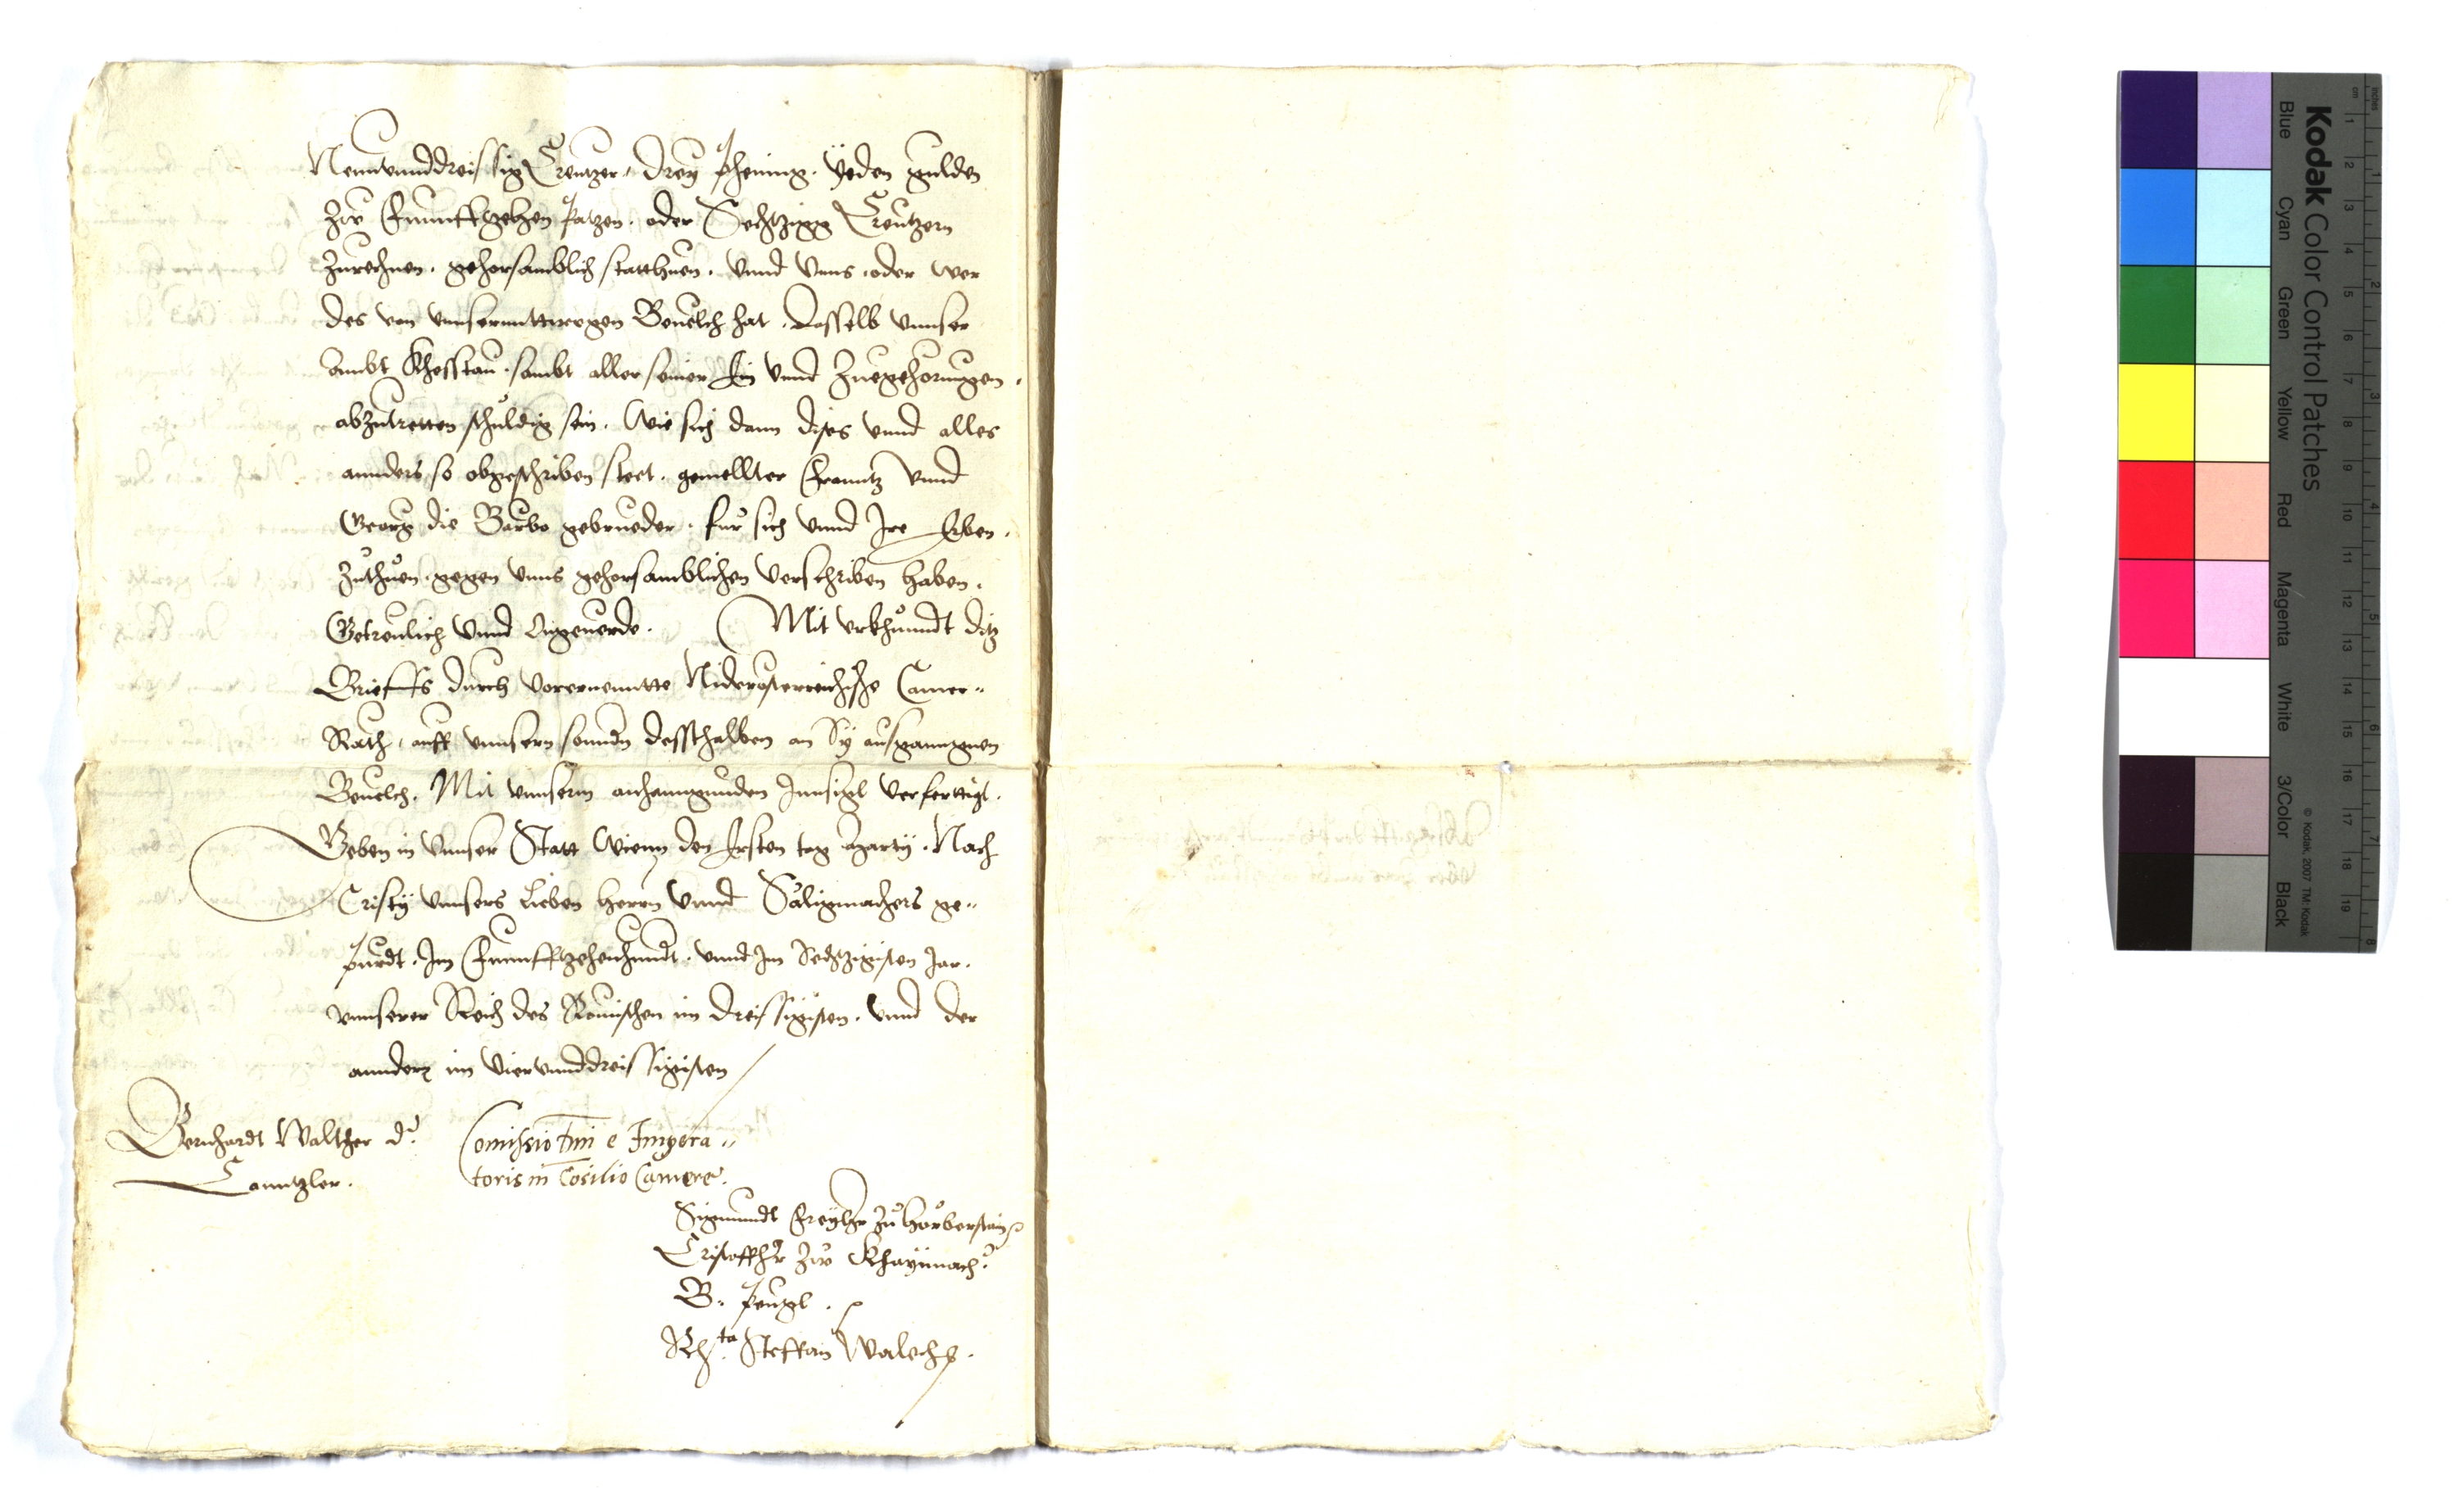 Neunvnnddreissig Creutzer, drey phening. Yeden gulden
Zw Funffzehen patzen. oder Sechtzigg Creutzern
Zurechnen. gehorsamblich statthuen. vnnd vnns. oder wer
des von vnnsernnttwegen Beuelch hat. dasselb vnnser
Ambt Khesstau. sambt aller seiner Ein vnnd Zuegehorungen.
abzutretten schuldig sein. Wie sich dann dises vnnd alles
annders, so obgeschriben steet. gemellter Franntz vnnd
Georg die Barbo gebrueder. fur sich vnnd Ire Erben.
Zuthuen. gegen vnns gehorsamblichen verschriben haben.
Getreulich vnnd Vngeuerde. Mit vrkhunndt ditz
Brieffs durch vorernenntte Niderosterreichische Camer„
Räth, auff vnnsern sonndern desshalben an Sy ausganngnen
Beuelch. Mit vnnserm anhanngunden Innsigl verferttigt.
Geben in Vnnser Statt Wienn den Ersten tag Marty. Nach
Cristy vnnsers Lieben herrn vnnd Säligmachers ge„
purdt. Im Funffzehenhundt. vnnd Im Sechtzigisten Jar.
vnnserer Reich des Römischen im dreissigisten. vnnd der
anndern im Viervnnddreissigisten
Bernhardt Walther d.
Canntzler.
Comissio dmi e Impera„
toris in Cosilio Camere.
Sigmundt Freyhr zu Herberstain
Cristoffhr zw Khaynnach.
B. Peugl.
Rta Steffan Walch
Kodak Color Control Patches
Blue Cyan Green Yellow Red Magenta White 3/Color Black
© Kodak, 2007 TM: Kodak
cm 1 2 3 4 5 6 7 8 9 10 11 12 13 14 15 16 17 18 19
inches 1 2 3 4 5 6 7 8